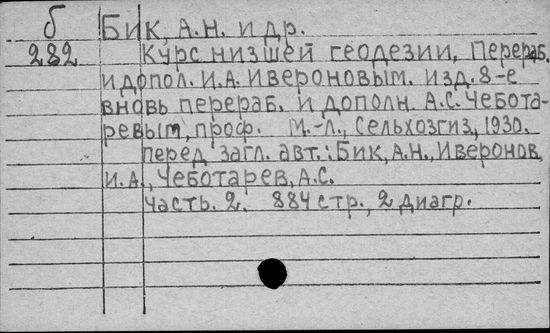 б Бик, А.Н. и др.
282 Курс низшей геодезии, Перераб.
и допол. И.А. Ивероновым. изд. 8-е
вновь перераб. и дополн. А.С. Чебота-
ревым, проф. М.-Л., Сельхозгиз, 1930.
перед загл. авт.: Бик, А.Н., Иверонов,
И.А., Чеботарев, А.С.
Часть. 2. 884 стр., 2 диагр.